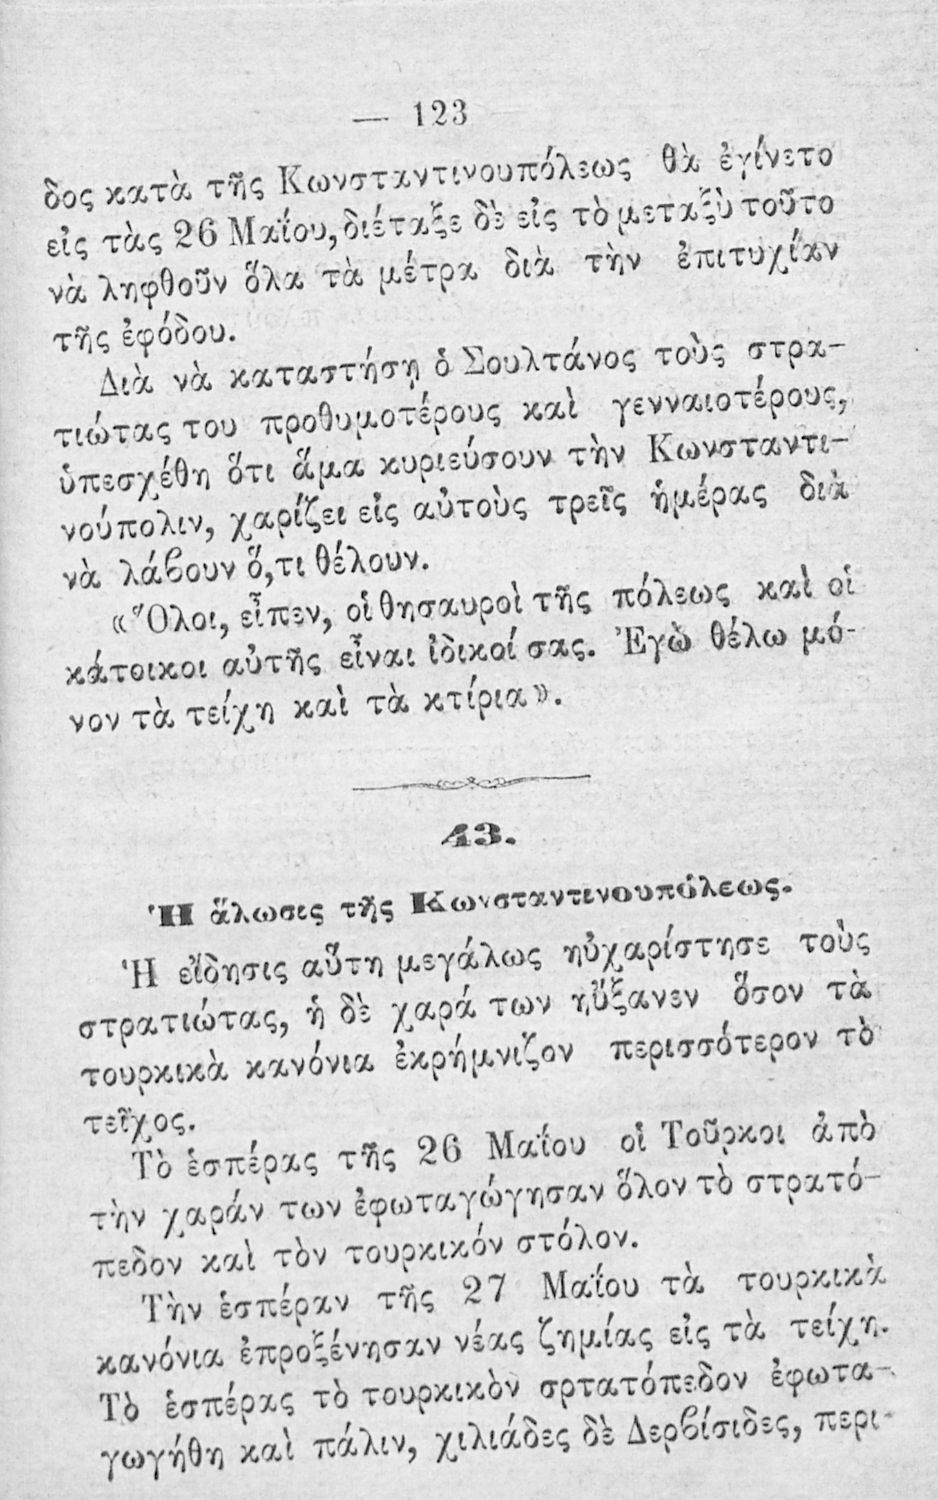 — 123
δος κατὰ τῆς Κωνσταντινουπόλεως θὰ ἐγίνετο
εἰς τὰς 26 Μαΐου, διέταξε δὲ εἰς τὸ μεταξὺ τοῦτο
νὰ ληφθοῦν ὅλα τὰ μέτρα διὰ τὴν ἐπιτυχίαν
τῆς ἐφόδου.
Διὰ νὰ καταστήσῃ ὁ Σουλτάνος τοὺς στρα-
τιώτας του προθυμοτέρους καὶ γενναιοτέρους,
ὑπεσχέθη ὅτι ἅμα κυριεύσουν τὴν Κωνσταντι-
νούπολιν, χαρίζει εἰς αὐτοὺς τρεῖς ἡμέρας διὰ
νὰ λάβουν ὅ,τι θέλουν.
«Ὅλοι, εἶπεν, οἱ θησαυροὶ τῆς πόλεως καὶ οἱ
κάτοικοι αὐτῆς εἶναι ἰδικοί σας. Ἐγὼ θέλω μό-
νον τὰ τείχη καὶ τὰ κτίρια».
43.
Ἡ ἅλωσις τῆς Κωνσταντινουπόλεως.
Ἡ εἴδησις αὕτη μεγάλως ηὐχαρίστησε τοὺς
στρατιώτας, ἡ δὲ χαρά των ηὔξανεν ὅσον τὰ
τουρκικὰ κανόνια ἐκρήμνιζον περισσότερον τὸ
τεῖχος.
Τὸ ἑσπέρας τῆς 26 Μαΐου οἱ Τοῦρκοι ἀπὸ
τὴν χαράν των ἐφωταγώγησαν ὅλον τὸ στρατό-
πεδον καὶ τὸν τουρκικόν στόλον.
Τὴν ἑσπέραν τῆς 27 Μαΐου τὰ τουρκικὰ
κανόνια ἐπροξένησαν νέας ζημίας εἰς τὰ τείχη.
Τὸ ἑσπέρας τὸ τουρκικὸν σρτατόπεδον ἐφωτα-
γωγήθη καὶ πάλιν, χιλιάδες δὲ Δερβίσιδες, περι-